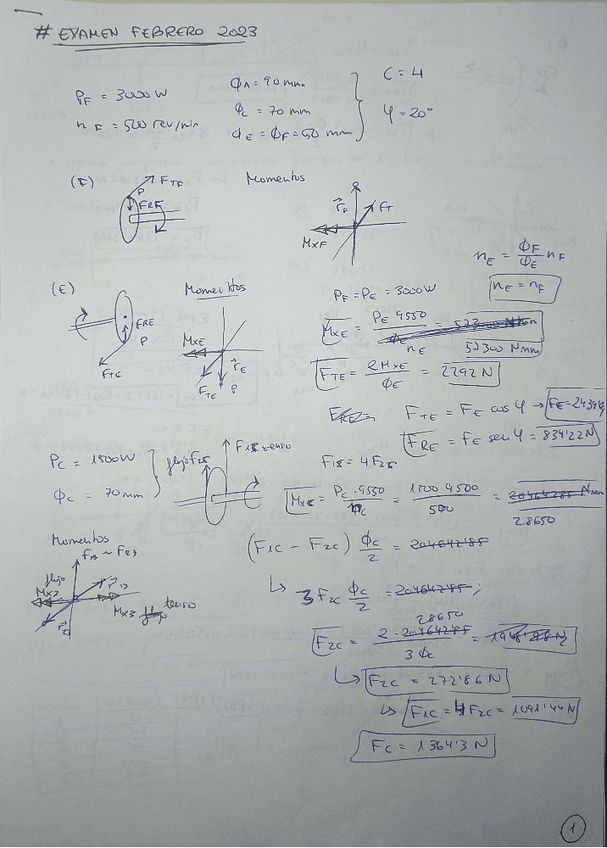 # EXAMEN FEBRERO 2023
P_F = 3000 W
n_F = 500 rev/min
ϕ_A = 90 mm
ϕ_C = 70 mm
d_E = ϕ_F = 50 mm
C = 4
φ = 20°
(F)
F_TF
P
F_RF
Momentos
r_F
F_T
M_XF
n_E = ϕ_F/ϕ_E n_F
n_E = n_F
(E)
F_RE
P
F_TE
Momentos
M_XE
r_E
F_TE
P
P_F = P_E = 3000 W
M_XE = P_E 9550 / n_E = 57300 N mm
F_TE = 2 M_XE / ϕ_E = 2292 N
F_TE = F_E cos φ →
F_RE = F_E sen φ = 834'22 N
P_C = 1500 W
ϕ_C = 70 mm
flojo F_2S
F_1S tenso
F_1S = 4 F_2S
= 1500 9500 / 500 =
28650
Momentos
flojo
M_X3
M_X3 tenso
(F_1C - F_2C) ϕ_C/2 = 20464285
↳ 3 F_2C ϕ_C/2 = 20464285;
28650
F_2C = 2 · 20464285 / 3 ϕ_C =
↳ F_2C = 272'86 N
↳ F_1C = 4 F_2C = 1091'44 N
F_C = 1364'3 N
1